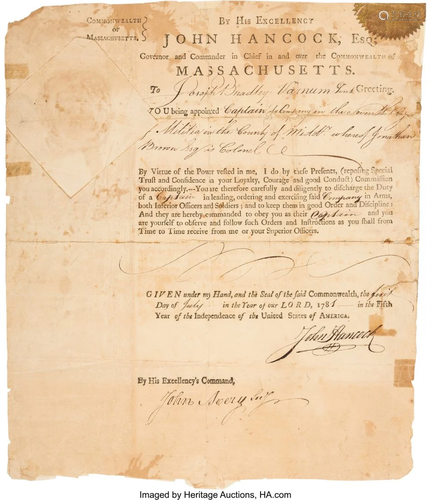 COMMONWEALTH
OF
MASSACHUSETTS,
BY HIS EXCELLENCY
JOHN HANCOCK, Esq;
Governor and Commander in Chief in and over the COMMONWEALTH of
MASSACHUSETTS.
To Joseph Bradley Varnum Gent. Greeting.
YOU being appointed Captain
of Militia in the County of Midd. whereof Jonathan
Brown Esq is Colonel
By Virtue of the Power vested in me, I do by these Presents, (reposing Special
Trust and Confidence in your Loyalty, Courage and good Conduct) Commission
you accordingly.—You are therefore carefully and diligently to discharge the Duty
of a Captain in leading, ordering and exercising said Company in Arms,
both Inferior Officers and Soldiers; and to keep them in good Order and Discipline:
And they are hereby commanded to obey you as their Captain and you
are yourself to observe and follow such Orders and Instructions as you shall from
Time to Time receive from me or your Superior Officers.
GIVEN under my Hand, and the Seal of the said Commonwealth, the first
Day of July in the Year of our LORD, 1781 in the Fifth
Year of the Independence of the United States of AMERICA.
John Hancock
By His Excellency's Command,
John Avery Secy
Imaged by Heritage Auctions, HA.com